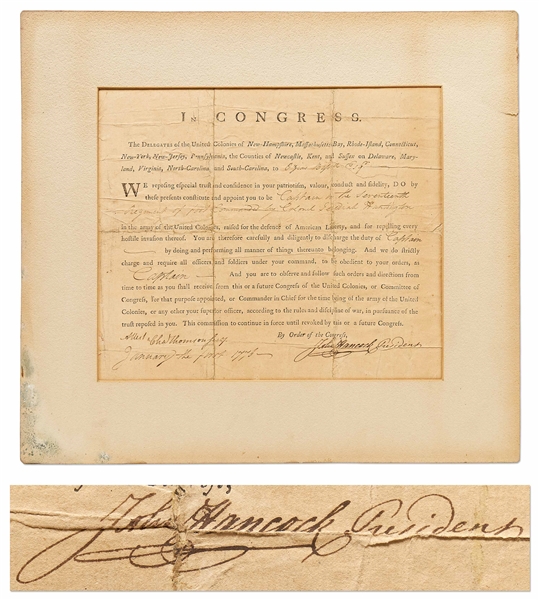 IN CONGRESS.
The DELEGATES of the United Colonies of New-Hampshire, Massachusetts-Bay, Rhode-Island, Connecticut,
New-York, New-Jersey, Pennsylvania, the Counties of Newcastle, Kent, and Sussex on Delaware, Mary-
land, Virginia, North-Carolina, and South-Carolina, to
WE reposing especial trust and confidence in your patriotism, valour, conduct and fidelity, DO by
these presents constitute and appoint you to be Captain in the Seventeenth
Regiment of foot commanded by Colonel
in the army of the United Colonies, raised for the defence of American Liberty, and for repelling every
hostile invasion thereof. You are therefore carefully and diligently to discharge the duty of Captain
by doing and performing all manner of things thereunto belonging. And we do strictly
charge and require all officers and soldiers under your command, to be obedient to your orders, as
Captain And you are to observe and follow such orders and directions from
time to time as you shall receive from this or a future Congress of the United Colonies, or Committee of
Congress, for that purpose appointed, or Commander in Chief for the time being of the army of the United
Colonies, or any other your superior officer, according to the rules and discipline of war, in pursuance of the
trust reposed in you. This commission to continue in force until revoked by this or a future Congress.
By Order of the Congress,
Attest Cha Thomson Secy John Hancock President
January the 1776
John Hancock President